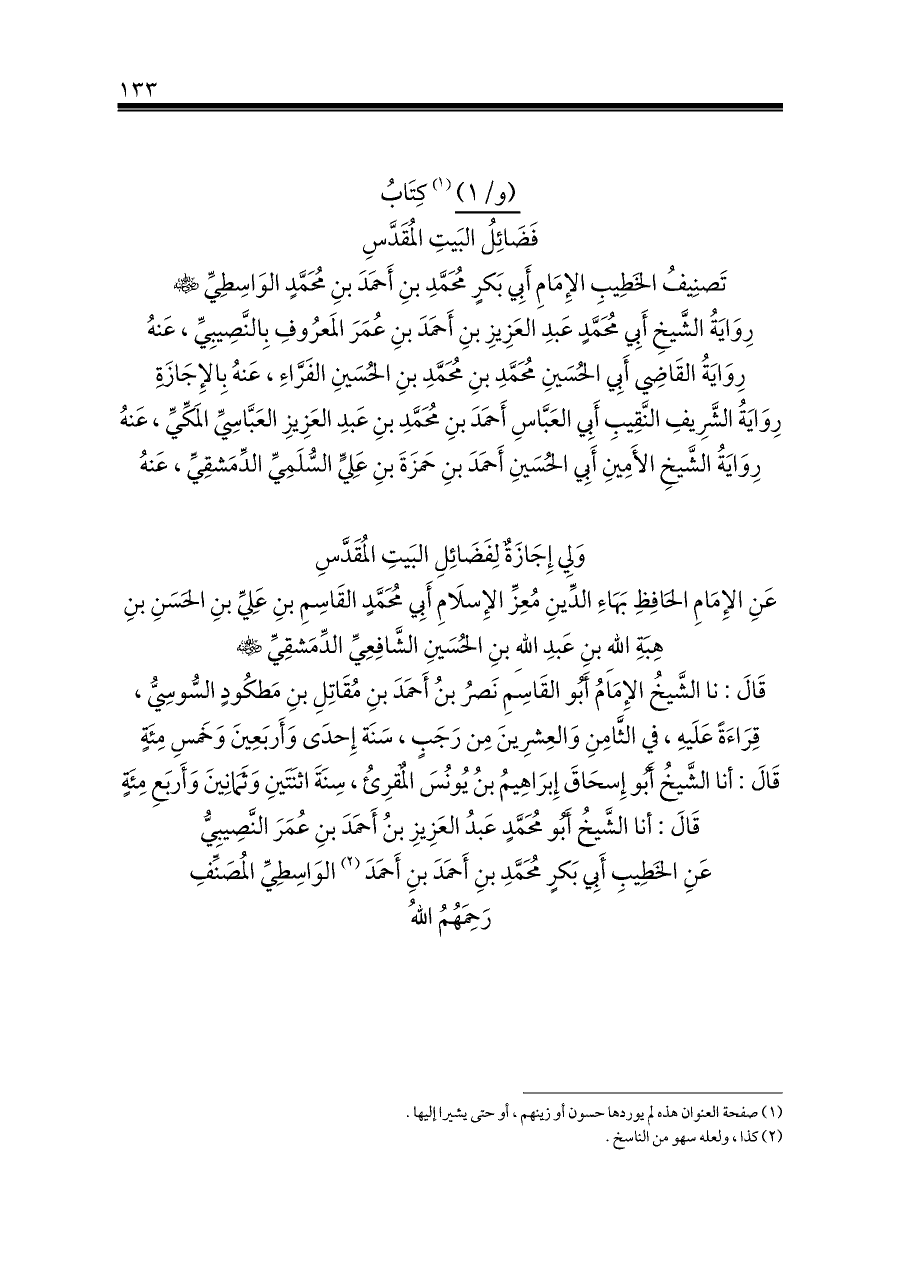 ١٣٣
(و/ ١) (١) كِتَابُ
فَضَائِلُ البَيتِ المُقَدَّسِ
تَصنِيفُ الخَطِيبِ الإِمَامِ أَبِي بَكرٍ مُحَمَّدِ بنِ أَحمَدَ بنِ مُحَمَّدٍ الوَاسِطِيِّ ﵁
رِوَايَةُ الشَّيخِ أَبِي مُحَمَّدٍ عَبدِ العَزِيزِ بنِ أَحمَدَ بنِ عُمَرَ المَعرُوفِ بِالنَّصِيبِيِّ ، عَنهُ
رِوَايَةُ القَاضِي أَبِي الحُسَينِ مُحَمَّدِ بنِ مُحَمَّدِ بنِ الحُسَينِ الفَرَّاءِ ، عَنهُ بِالإِجَازَةِ
رِوَايَةُ الشَّرِيفِ النَّقِيبِ أَبِي العَبَّاسِ أَحمَدَ بنِ مُحَمَّدِ بنِ عَبدِ العَزِيزِ العَبَّاسِيِّ المَكِّيِّ ، عَنهُ
رِوَايَةُ الشَّيخِ الأَمِينِ أَبِي الحُسَينِ أَحمَدَ بنِ حَمزَةَ بنِ عَلِيٍّ السُّلَمِيِّ الدِّمَشقِيِّ ، عَنهُ
وَلِي إِجَازَةٌ لِفَضَائِلِ البَيتِ المُقَدَّسِ
عَنِ الإِمَامِ الحَافِظِ بَهَاءِ الدِّينِ مُعِزِّ الإِسلَامِ أَبِي مُحَمَّدٍ القَاسِمِ بنِ عَلِيِّ بنِ الحَسَنِ بنِ
هِبَةِ اللهِ بنِ عَبدِ اللهِ بنِ الحُسَينِ الشَّافِعِيِّ الدِّمَشقِيِّ ﵁
قَالَ : نا الشَّيخُ الإِمَامُ أَبُو القَاسِمِ نَصرُ بنُ أَحمَدَ بنِ مُقَاتِلِ بنِ مَطكُودٍ السُّوسِيُّ ،
قِرَاءَةً عَلَيهِ ، فِي الثَّامِنِ وَالعِشرِينَ مِن رَجَبٍ ، سَنَة إِحدَى وَأَربَعِينَ وَخَمسِ مِئَةٍ
قَالَ : أنا الشَّيخُ أَبُو إِسحَاقَ إِبرَاهِيمُ بنُ يُونُسَ المُقرِئُ ، سِنَةَ اثنَتَينِ وَثَمَانِينَ وَأَربَعِ مِئَةٍ
قَالَ : أنا الشَّيخُ أَبُو مُحَمَّدٍ عَبدُ العَزِيزِ بنُ أَحمَدَ بنِ عُمَرَ النَّصِيبِيُّ
عَنِ الخَطِيبِ أَبِي بَكرٍ مُحَمَّدِ بنِ أَحمَدَ بنِ أَحمَدَ (٢) الوَاسِطِيِّ المُصَنِّفِ
رَحِمَهُمُ اللهُ
(١) صفحة العنوان هذه لم يوردها حسون أو زينهم ، أو حتى يشيرا إليها .
(٢) كذا ، ولعله سهو من الناسخ .